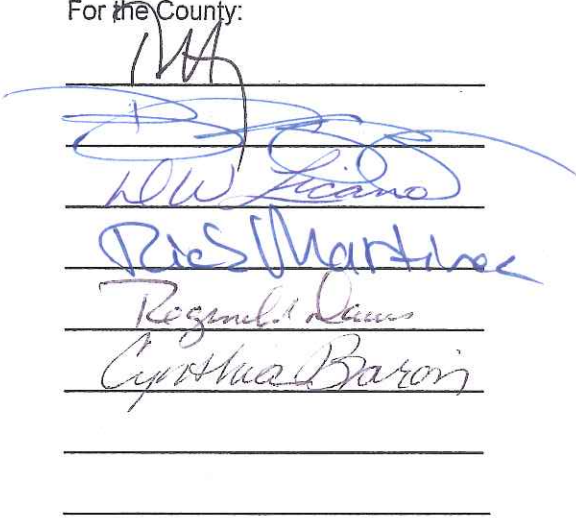 For the County:
DW Licano
Rick Martinez
Reginald Davis
Cynthia Baron